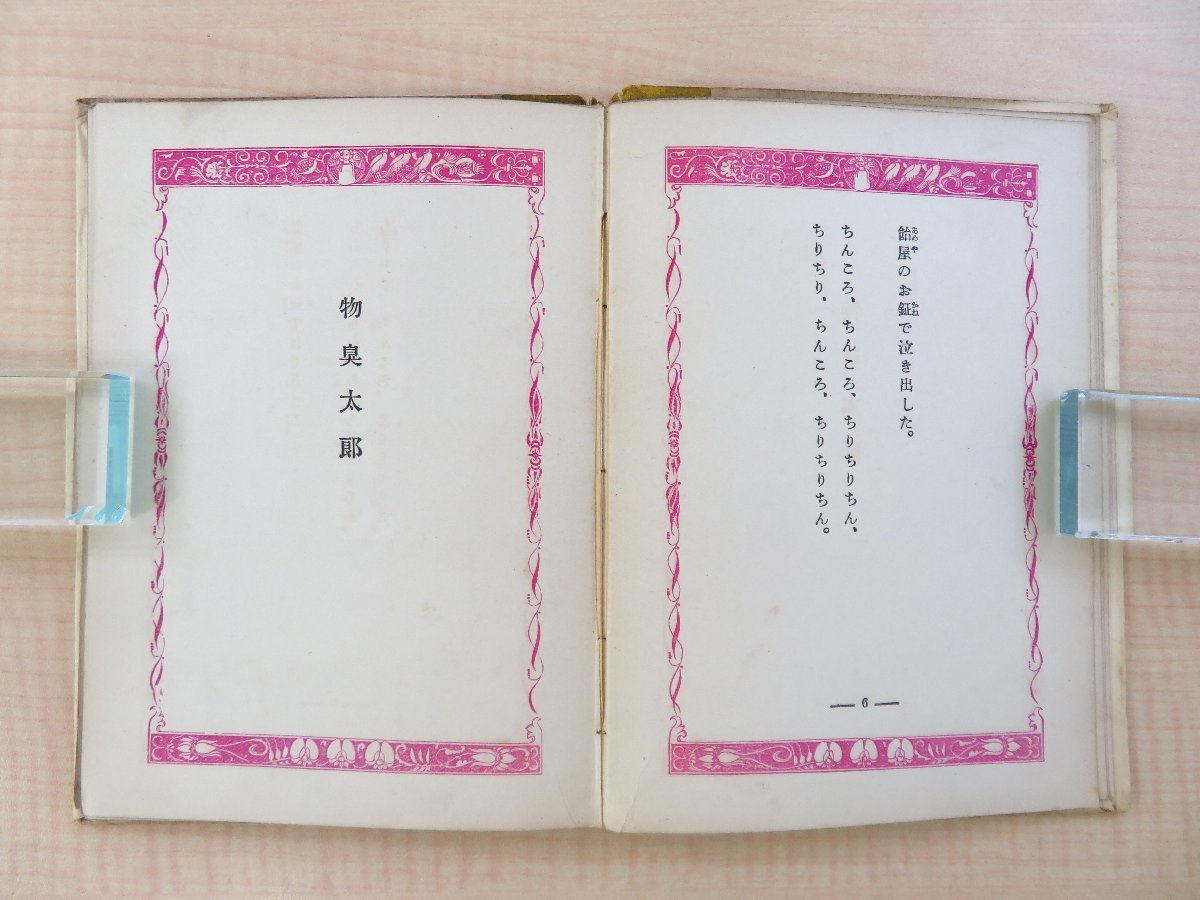 飴屋のお鉦で泣き出した。
ちんころ、ちんころ、ちりちりちん、
ちりちり、ちんころ、ちりちりちん。
6
物臭太郞